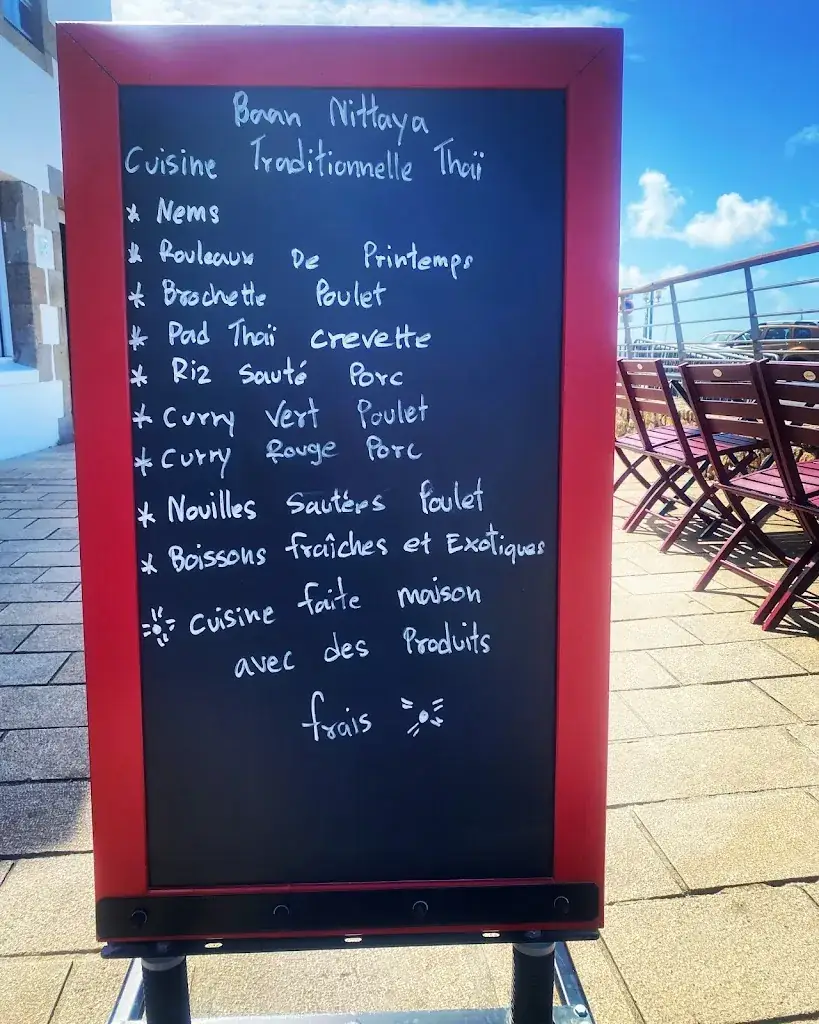 Baan Nittaya
Cuisine Traditionnelle Thaï
* Nems
* Rouleaux De Printemps
* Brochette Poulet
* Pad Thaï crevette
* Riz Sauté Porc
* Curry Vert Poulet
* Curry Rouge Porc
* Nouilles Sautées Poulet
* Boissons fraîches et Exotiques
cuisine faite maison
avec des Produits
frais